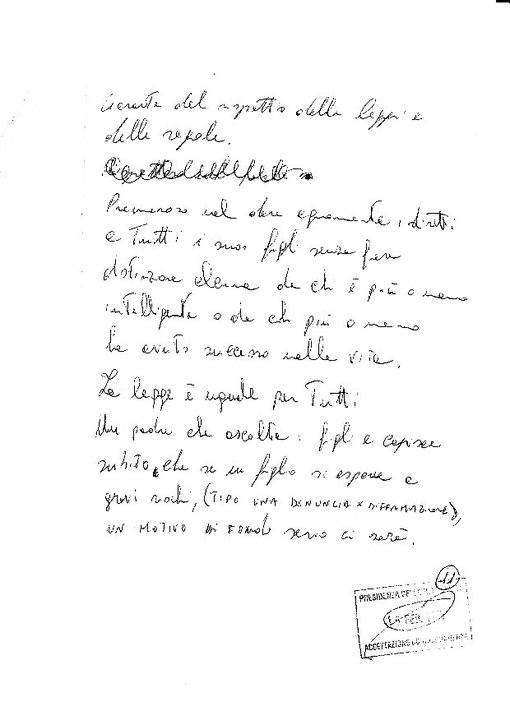 del rispetto delle leggi e
delle regole.
Premuroso nel dare equamente i diritti
a Tutti i suoi figli senza fare
distinzione alcuna da chi è più o meno
intelligente o da chi più o meno
ha avuto successo nella vita.
La legge è uguale per Tutti
Un padre che ascolta i figli e capisce
subito, che se un figlio si espone a
gravi rischi, (TIPO UNA DENUNCIA X DIFFAMAZIONE),
UN MOTIVO DI FONDO serio ci sarà.
11
PRESIDENZA
ACCETTAZIONE